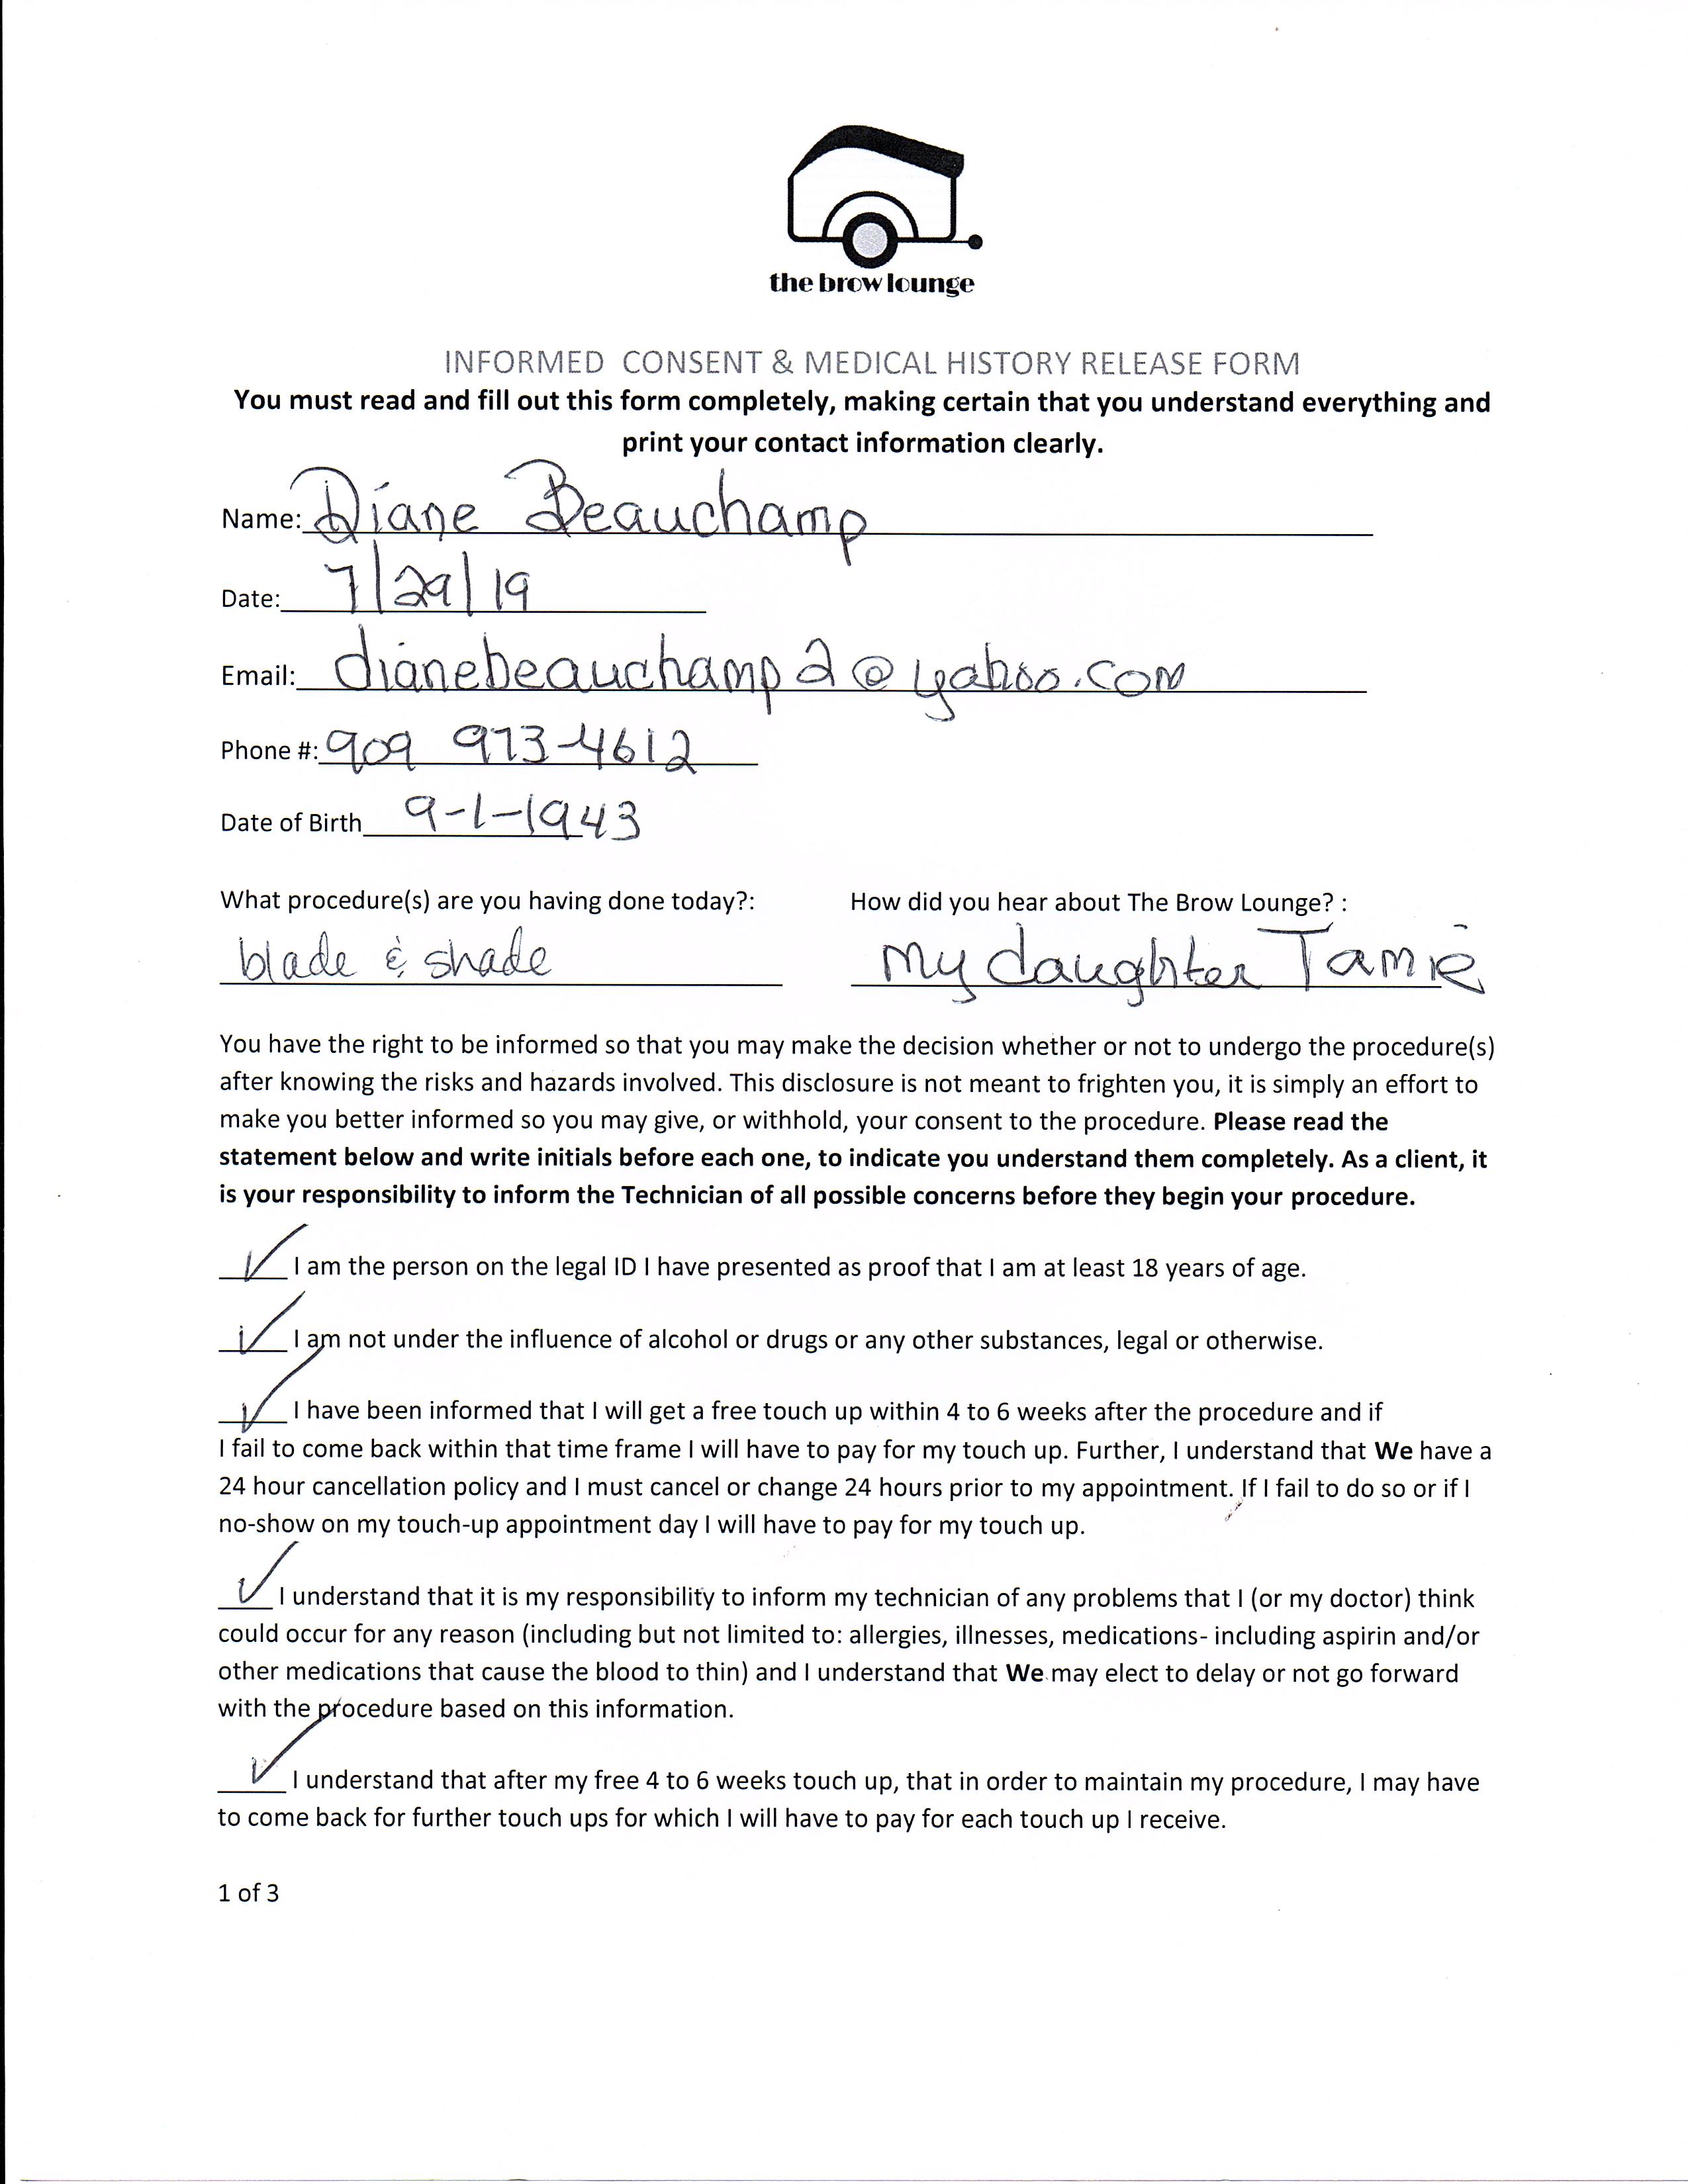 the brow lounge
INFORMED CONSENT & MEDICAL HISTORY RELEASE FORM
You must read and fill out this form completely, making certain that you understand everything and
print your contact information clearly.
Name: Diane Beauchamp
Date: 7/29/19
Email: dianebeauchamp2@yahoo.com
Phone #: 909 973-4612
Date of Birth 9-1-1943
What procedure(s) are you having done today?: How did you hear about The Brow Lounge? :
blade & shade My daughter Tamie
You have the right to be informed so that you may make the decision whether or not to undergo the procedure(s)
after knowing the risks and hazards involved. This disclosure is not meant to frighten you, it is simply an effort to
make you better informed so you may give, or withhold, your consent to the procedure. Please read the
statement below and write initials before each one, to indicate you understand them completely. As a client, it
is your responsibility to inform the Technician of all possible concerns before they begin your procedure.
✓ I am the person on the legal ID I have presented as proof that I am at least 18 years of age.
✓ I am not under the influence of alcohol or drugs or any other substances, legal or otherwise.
✓ I have been informed that I will get a free touch up within 4 to 6 weeks after the procedure and if
I fail to come back within that time frame I will have to pay for my touch up. Further, I understand that We have a
24 hour cancellation policy and I must cancel or change 24 hours prior to my appointment. If I fail to do so or if I
no-show on my touch-up appointment day I will have to pay for my touch up.
✓ I understand that it is my responsibility to inform my technician of any problems that I (or my doctor) think
could occur for any reason (including but not limited to: allergies, illnesses, medications- including aspirin and/or
other medications that cause the blood to thin) and I understand that We may elect to delay or not go forward
with the procedure based on this information.
✓ I understand that after my free 4 to 6 weeks touch up, that in order to maintain my procedure, I may have
to come back for further touch ups for which I will have to pay for each touch up I receive.
1 of 3